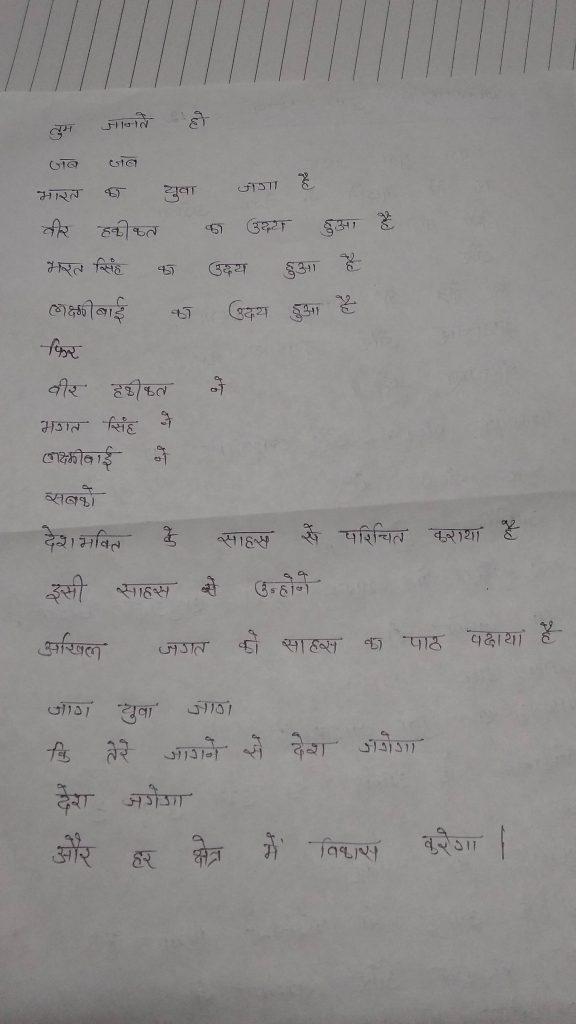 तुम जानते हो
जब जब
भारत का युवा जगा है
वीर हकीकत का उदय हुआ है
भगत सिंह का उदय हुआ है
लक्ष्मीबाई का उदय हुआ है
फिर
वीर हकीकत ने
भगत सिंह ने
लक्ष्मीबाई ने
सबको
देशभक्ति के साहस से परिचित कराया है
इसी साहस से उन्होंने
अखिल जगत को साहस का पाठ पढाया है
जाग युवा जाग
कि तेरे जागने से देश जगेगा
देश जगेगा
और हर क्षेत्र में विकास करेगा |